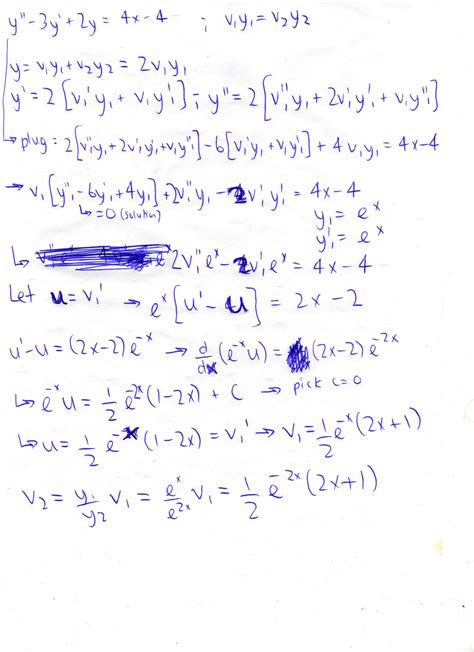 y'' - 3y' + 2y = 4x - 4 ; v₁y₁ = v₂y₂
y = v₁y₁ + v₂y₂ = 2v₁y₁
y' = 2[v₁'y₁ + v₁y₁'] ; y'' = 2[v₁''y₁ + 2v₁'y₁' + v₁y₁'']
→ plug = 2[v₁''y₁ + 2v₁'y₁' + v₁y₁''] - 6[v₁'y₁ + v₁y₁'] + 4v₁y₁ = 4x - 4
→ v₁[y₁'' - 6y₁' + 4y₁] + 2v₁''y₁ - 2v₁'y₁' = 4x - 4
↳ = 0 (solution)
y₁ = eˣ
y₁' = eˣ
↳ 2v₁''eˣ - 2v₁'eˣ = 4x - 4
Let u = v₁' → eˣ[u' - u] = 2x - 2
u' - u = (2x - 2)e⁻ˣ → d/dx (e⁻ˣu) = (2x - 2)e⁻²ˣ
↳ e⁻ˣu = 1/2 e⁻²ˣ(1 - 2x) + C → pick c = 0
↳ u = 1/2 e⁻ˣ(1 - 2x) = v₁' → v₁ = 1/2 e⁻ˣ(2x + 1)
v₂ = y₁/y₂ v₁ = eˣ/e²ˣ v₁ = 1/2 e⁻²ˣ(2x + 1)